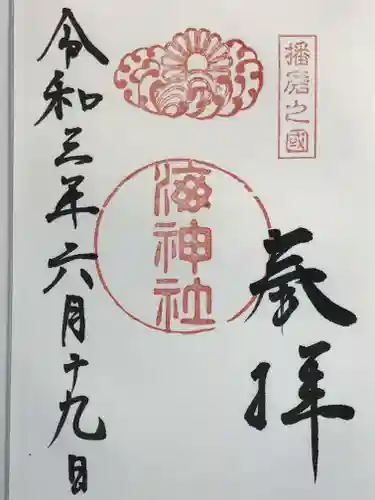 播磨之國
奉拝
海神社
令和三年六月十九日